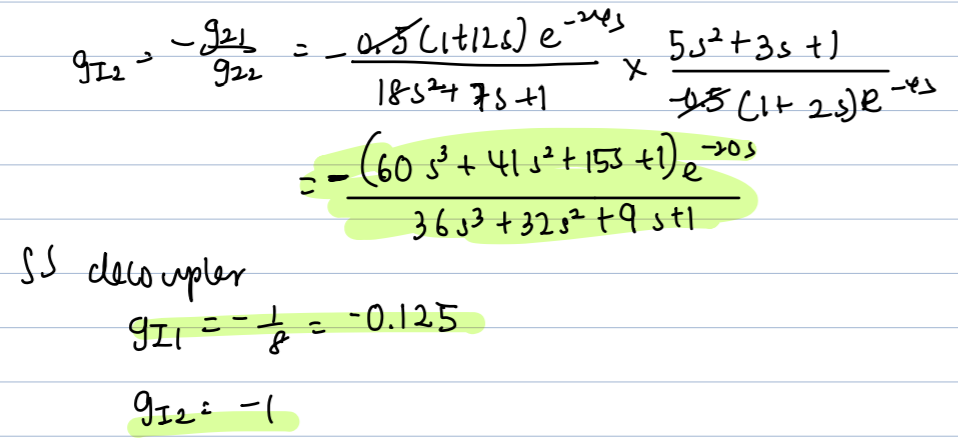 g_I2 = -g_21/g_22 = - 0.5(1+12s)e^(-24s)/(18s²+7s+1) × (5s²+3s+1)/(-0.5(1+2s)e^(-4s))
= - (60s³+41s²+15s+1)e^(-20s)/(36s³+32s²+9s+1)
SS decoupler
g_I1 = -1/8 = -0.125
g_I2 = -1